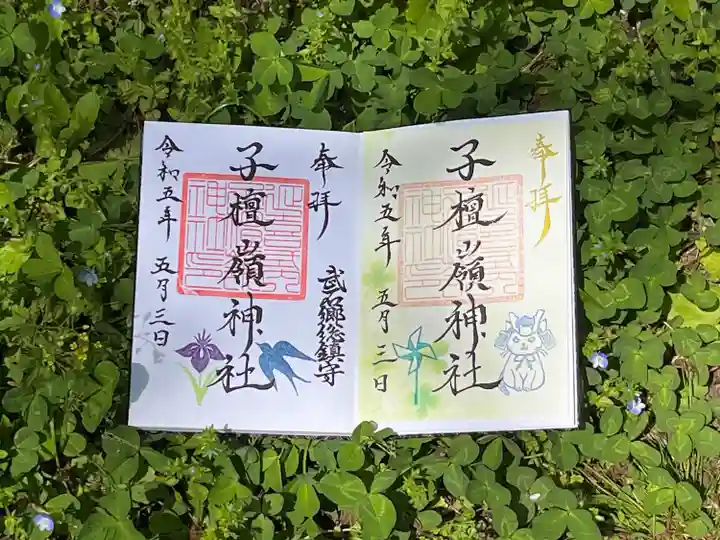 奉拝
武郷総鎮守
子檀嶺神社
令和五年 五月三日
奉拝
子檀嶺神社
令和五年 五月三日